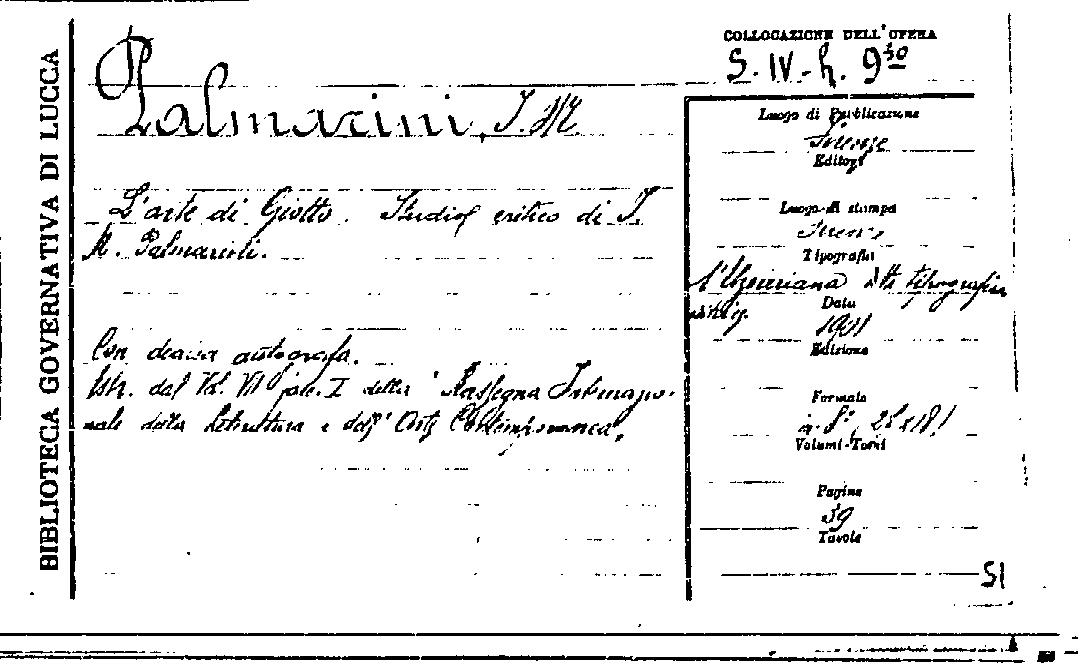 BIBLIOTECA GOVERNATIVA DI LUCCA
COLLOCAZIONE DELL'OPERA
S. IV - h. 9
Palmarini, I. M.
Luogo di Pubblicazione
Firenze
Editore
L'arte di Giotto. Studio critico di I.
M. Palmarini.
Luogo di stampa
Firenze
Tipografia
l'Elzeviriana tipografia
Data
1901
Edizione
Con dedica autografa.
Estr. dal Vol. VI fasc. I della "Rassegna Internazio-
nale della letteratura e dell'Arte Contemporanea.
Formato
in 8°, 25x18
Volumi-Tomi
Pagine
39
Tavole
SI